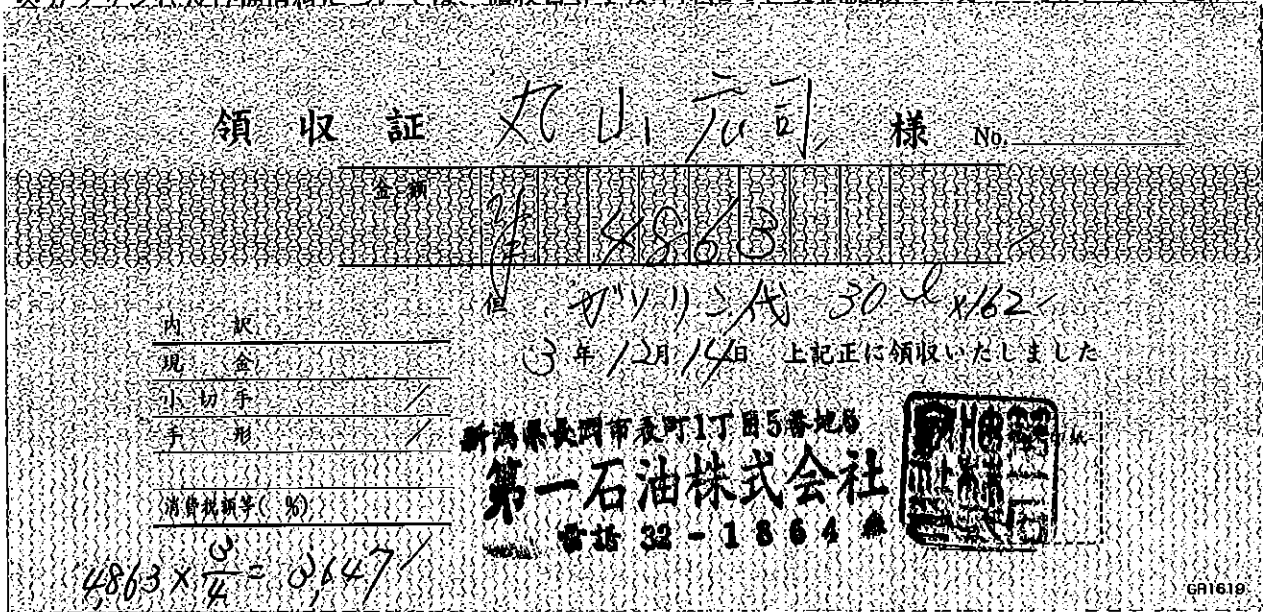 領収証 丸山広司 様 No.
金額 ¥4863
但 ガソリン代 30ℓ×162
内訳
現金
小切手
手形
消費税額等( %)
3年12月14日 上記正に領収いたしました
新潟県長岡市表町1丁目5番地6
第一石油株式会社
電話 32-1864
4,863 × 3/4 = 3,647
GR1619